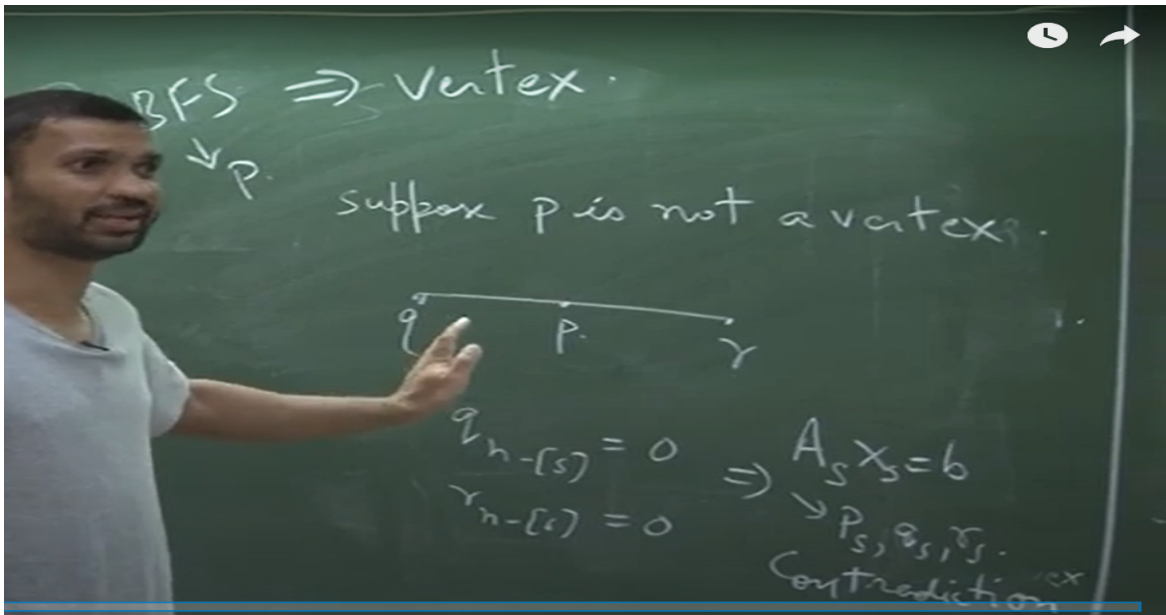 BFS ⇒ Vertex.
↓ p.
suppose p is not a vertex.
q p. r
q n-[s] = 0 ⇒ A_s x_s = b
r n-[s] = 0 ↘ P_s, q_s, r_s.
Contradiction